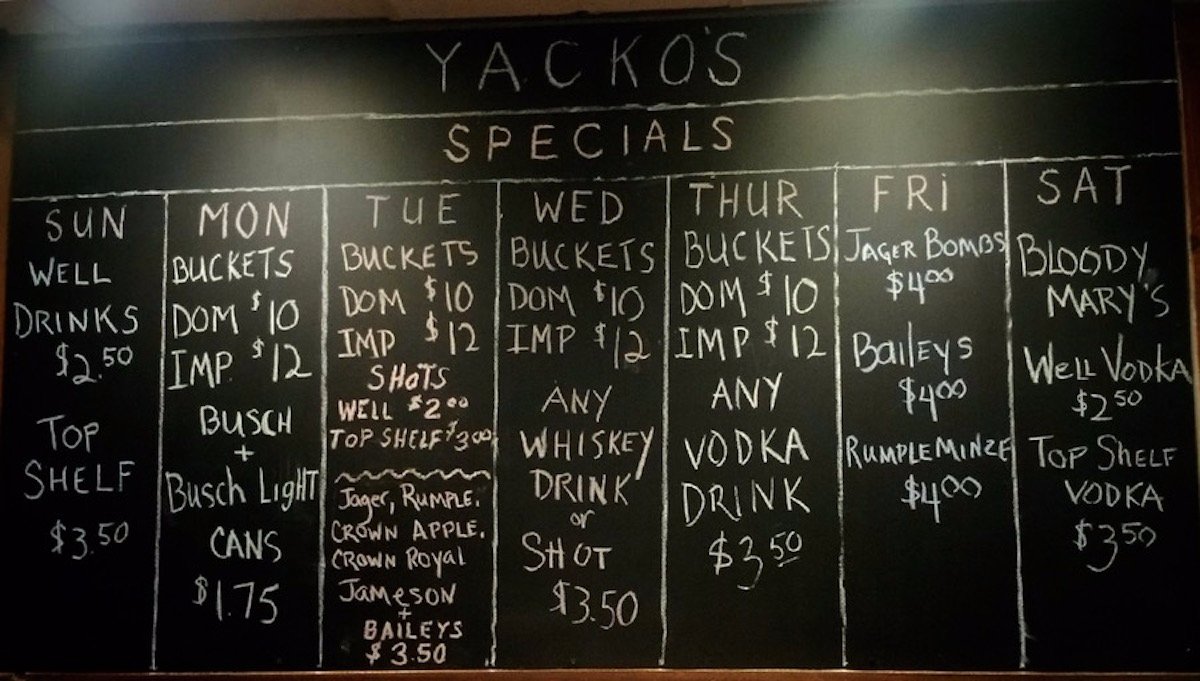 YACKO'S
SPECIALS
SUN
WELL
DRINKS
$2.50
TOP
SHELF
$3.50
MON
BUCKETS
DOM $10
IMP $12
BUSCH
+
Busch Light
CANS
$1.75
TUE
BUCKETS
DOM $10
IMP $12
SHOTS
WELL $2.00
TOP SHELF $3.00
Jager, RUMPLE.
CROWN APPLE.
CROWN ROyAL
JAMESON
+
BAILEYS
$3.50
WED
BUCKETS
DOM $10
IMP $12
ANY
WHISKEY
DRINK
or
SHOT
$3.50
THUR
BUCKETS
DOM $10
IMP $12
ANY
VODKA
DRINK
$3.50
FRi
JAGER BOMBS
$4.00
Baileys
$4.00
RUMPLEMINZE
$4.00
SAT
BLOODY
MARY'S
WELL VODKA
$2.50
TOP SHELF
VODKA
$3.50